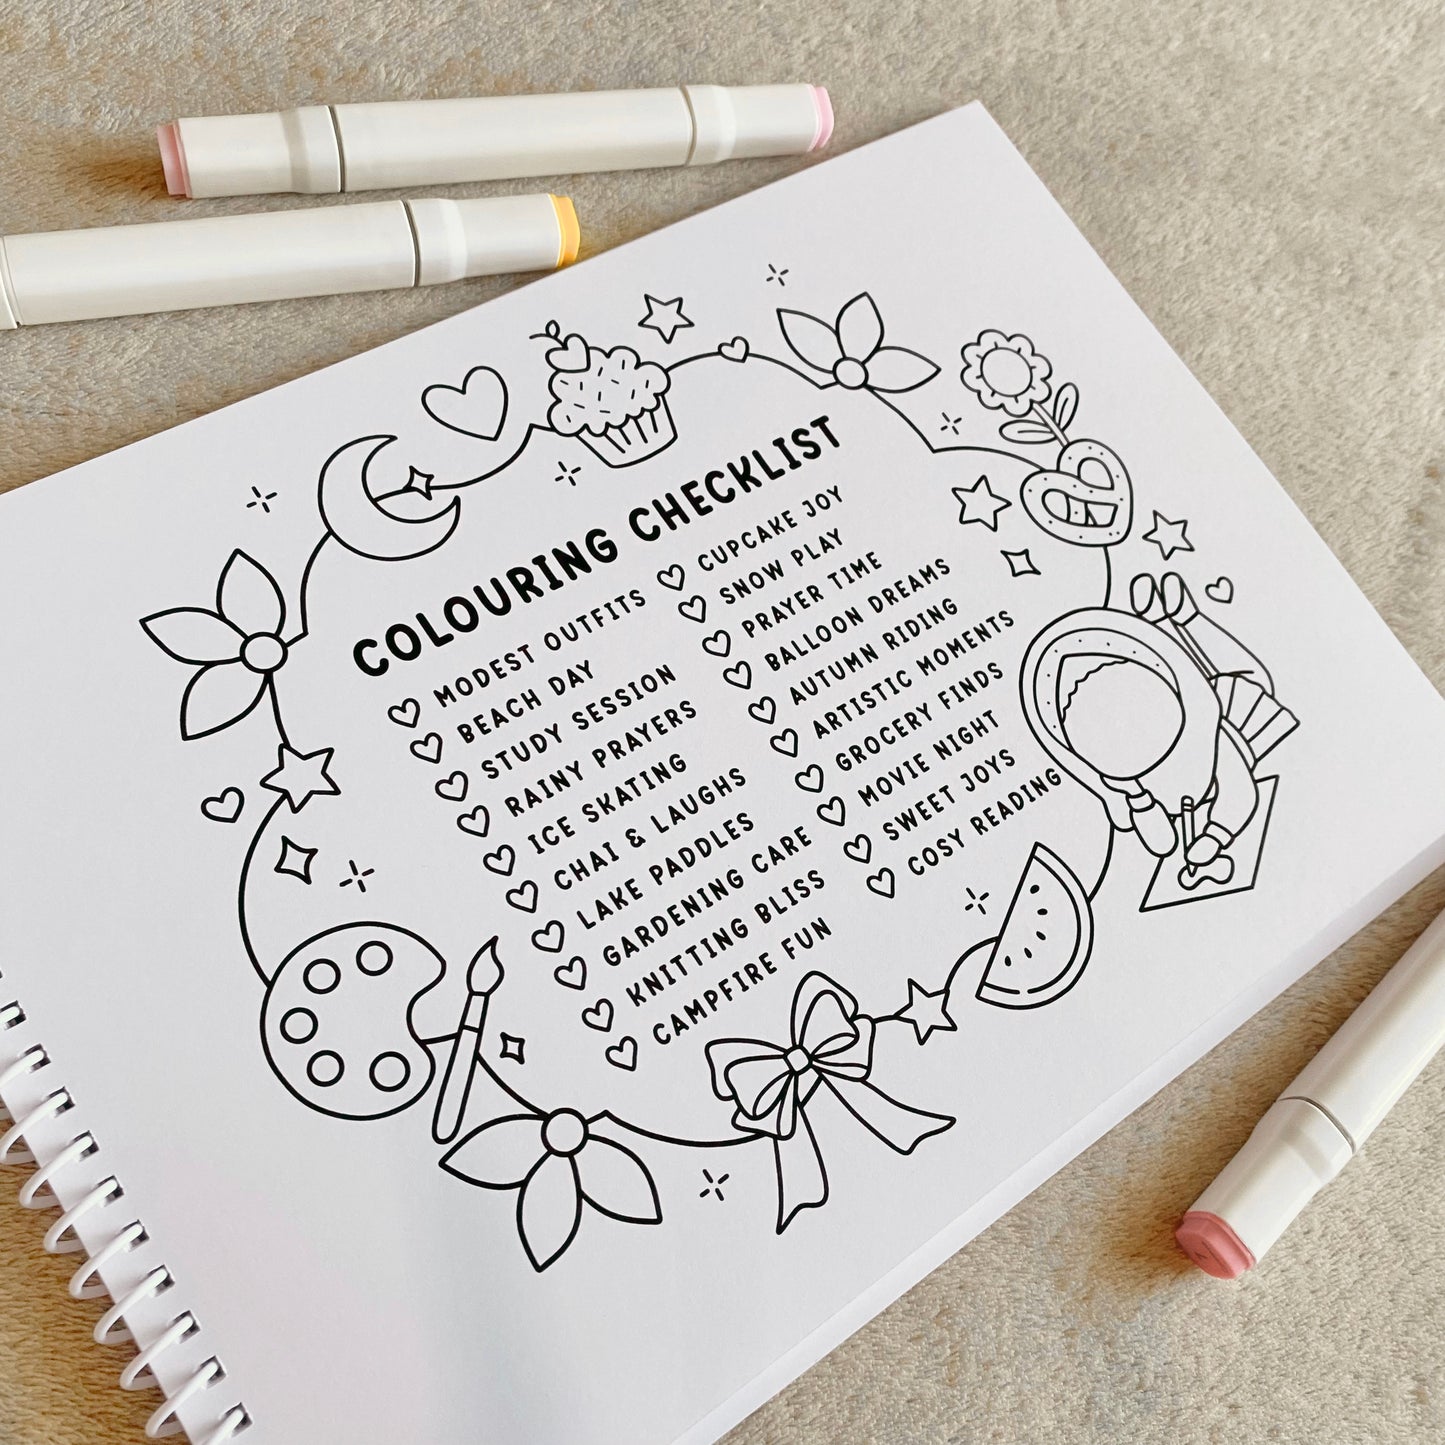 COLOURING CHECKLIST
MODEST OUTFITS
BEACH DAY
STUDY SESSION
RAINY PRAYERS
ICE SKATING
CHAI & LAUGHS
LAKE PADDLES
GARDENING CARE
KNITTING BLISS
CAMPFIRE FUN
CUPCAKE JOY
SNOW PLAY
PRAYER TIME
BALLOON DREAMS
AUTUMN RIDING
ARTISTIC MOMENTS
GROCERY FINDS
MOVIE NIGHT
SWEET JOYS
COSY READING